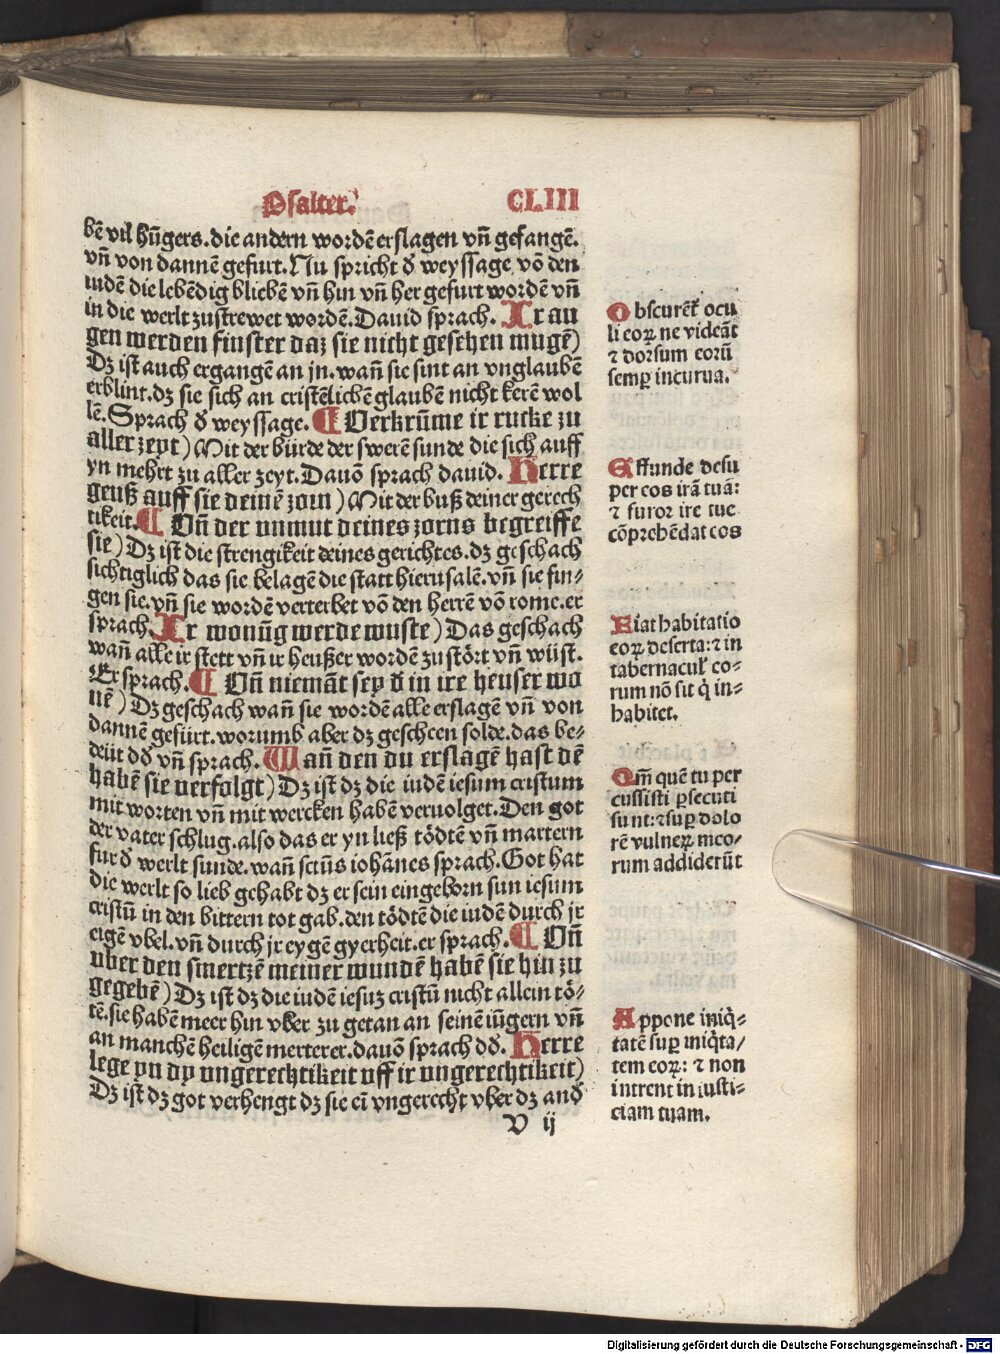 Psalter. CLIII
bē vil hūgers. die andern wordē erslagen vn̄ gefangē.
vn̄ von dannē gefurt. Nu spricht d̕ weyssage vō den
iudē die lebēdig bliebē vn̄ hin vn̄ her gefurt wordē vn̄
in die werlt zustrewet wordē. Dauid sprach. Ir au
gen werden finster daz sie nicht gesehen mugē)
Dz ist auch ergangē an jn. wan̄ sie sint an vnglaubē
erblint. dz sie sich an cristēlichē glaubē nicht kerē wol
lē. Sprach d̕ weyssage. ¶ Verkrūme ir rucke zu
aller zeyt) Mit der bürde der swerē sunde die sich auff
yn mehrt zu aller zeyt. Dauō sprach dauid. Herre
geuß auff sie deinē zorn) Mit der buß deiner gerech
tikeit. ¶ Vn̄ der unmut deines zorns begreiffe
sie) Dz ist die strengikeit deines gerichtes. dz geschach
sichtiglich das sie belagē die statt hierusalē. vn̄ sie fin⸗
gen sie. vn̄ sie wordē verterbet vō den herrē vō rome. er
sprach. Ir wonūg werde wuste) Das geschach
wan̄ alle ir stett vn̄ ir heußer wordē zustört vn̄ wüst.
Er sprach. ¶ Vn̄ niemāt sey d̕ in ire heuser wo
nē) Dz geschach wan̄ sie wordē alle erslagē vn̄ von
dannē gefürt. worumb aber dz gescheen solde. das be⸗
deüt dd̕ vn̄ sprach. Wan̄ den du erslagē hast dē
habē sie verfolgt) Dz ist dz die iudē iesum cristum
mit worten vn̄ mit wercken habē veruolget. Den got
der vater schlug. also das er yn ließ tödtē vn̄ martern
fur d̕ werlt sunde. wan̄ sctūs iohānes sprach. Got hat
die werlt so lieb gehabt dz er sein eingeborn sun iesum
cristū in den bittern tot gab. den tödtē die iudē durch jr
eigē vbel. vn̄ durch jr eygē gyerheit. er sprach. ¶ Vn̄
uber den smertzē meiner wundē habē sie hin zu
gegebē) Dz ist dz die iudē iesuz cristū nicht allein tö⸗
tē. sie habē meer hin vber zu getan an seinē iūgern vn̄
an manchē heiligē merterer. dauō sprach dd̕. Herre
lege yn dy ungerechtikeit uff ir ungerechtikeit)
Dz ist dz got verhengt dz sie ei vngerecht vber dz and̕
V ij
Obscurēt̉ ocu
li eoꝝ ne videāt
⁊ dorsum eorū
semꝑ incurua.
Effunde desu
per eos irā tuā:
⁊ furor ire tue
cōprehēdat eos
Fiat habitatio
eoꝝ deserta: ⁊ in
tabernacul̉ eo⸗
rum nō sit q̇ in⸗
habitet.
Qm̄ quē tu per
cussisti ꝑsecuti
sunt: ⁊ suꝑ dolo
rē vulneꝝ meo⸗
rum addiderūt
Appone iniq̇⸗
tatē suꝑ iniq̇ta⸗
tem eoꝝ: ⁊ non
intrent in iusti⸗
ciam tuam.
Digitalisierung gefördert durch die Deutsche Forschungsgemeinschaft - DFG